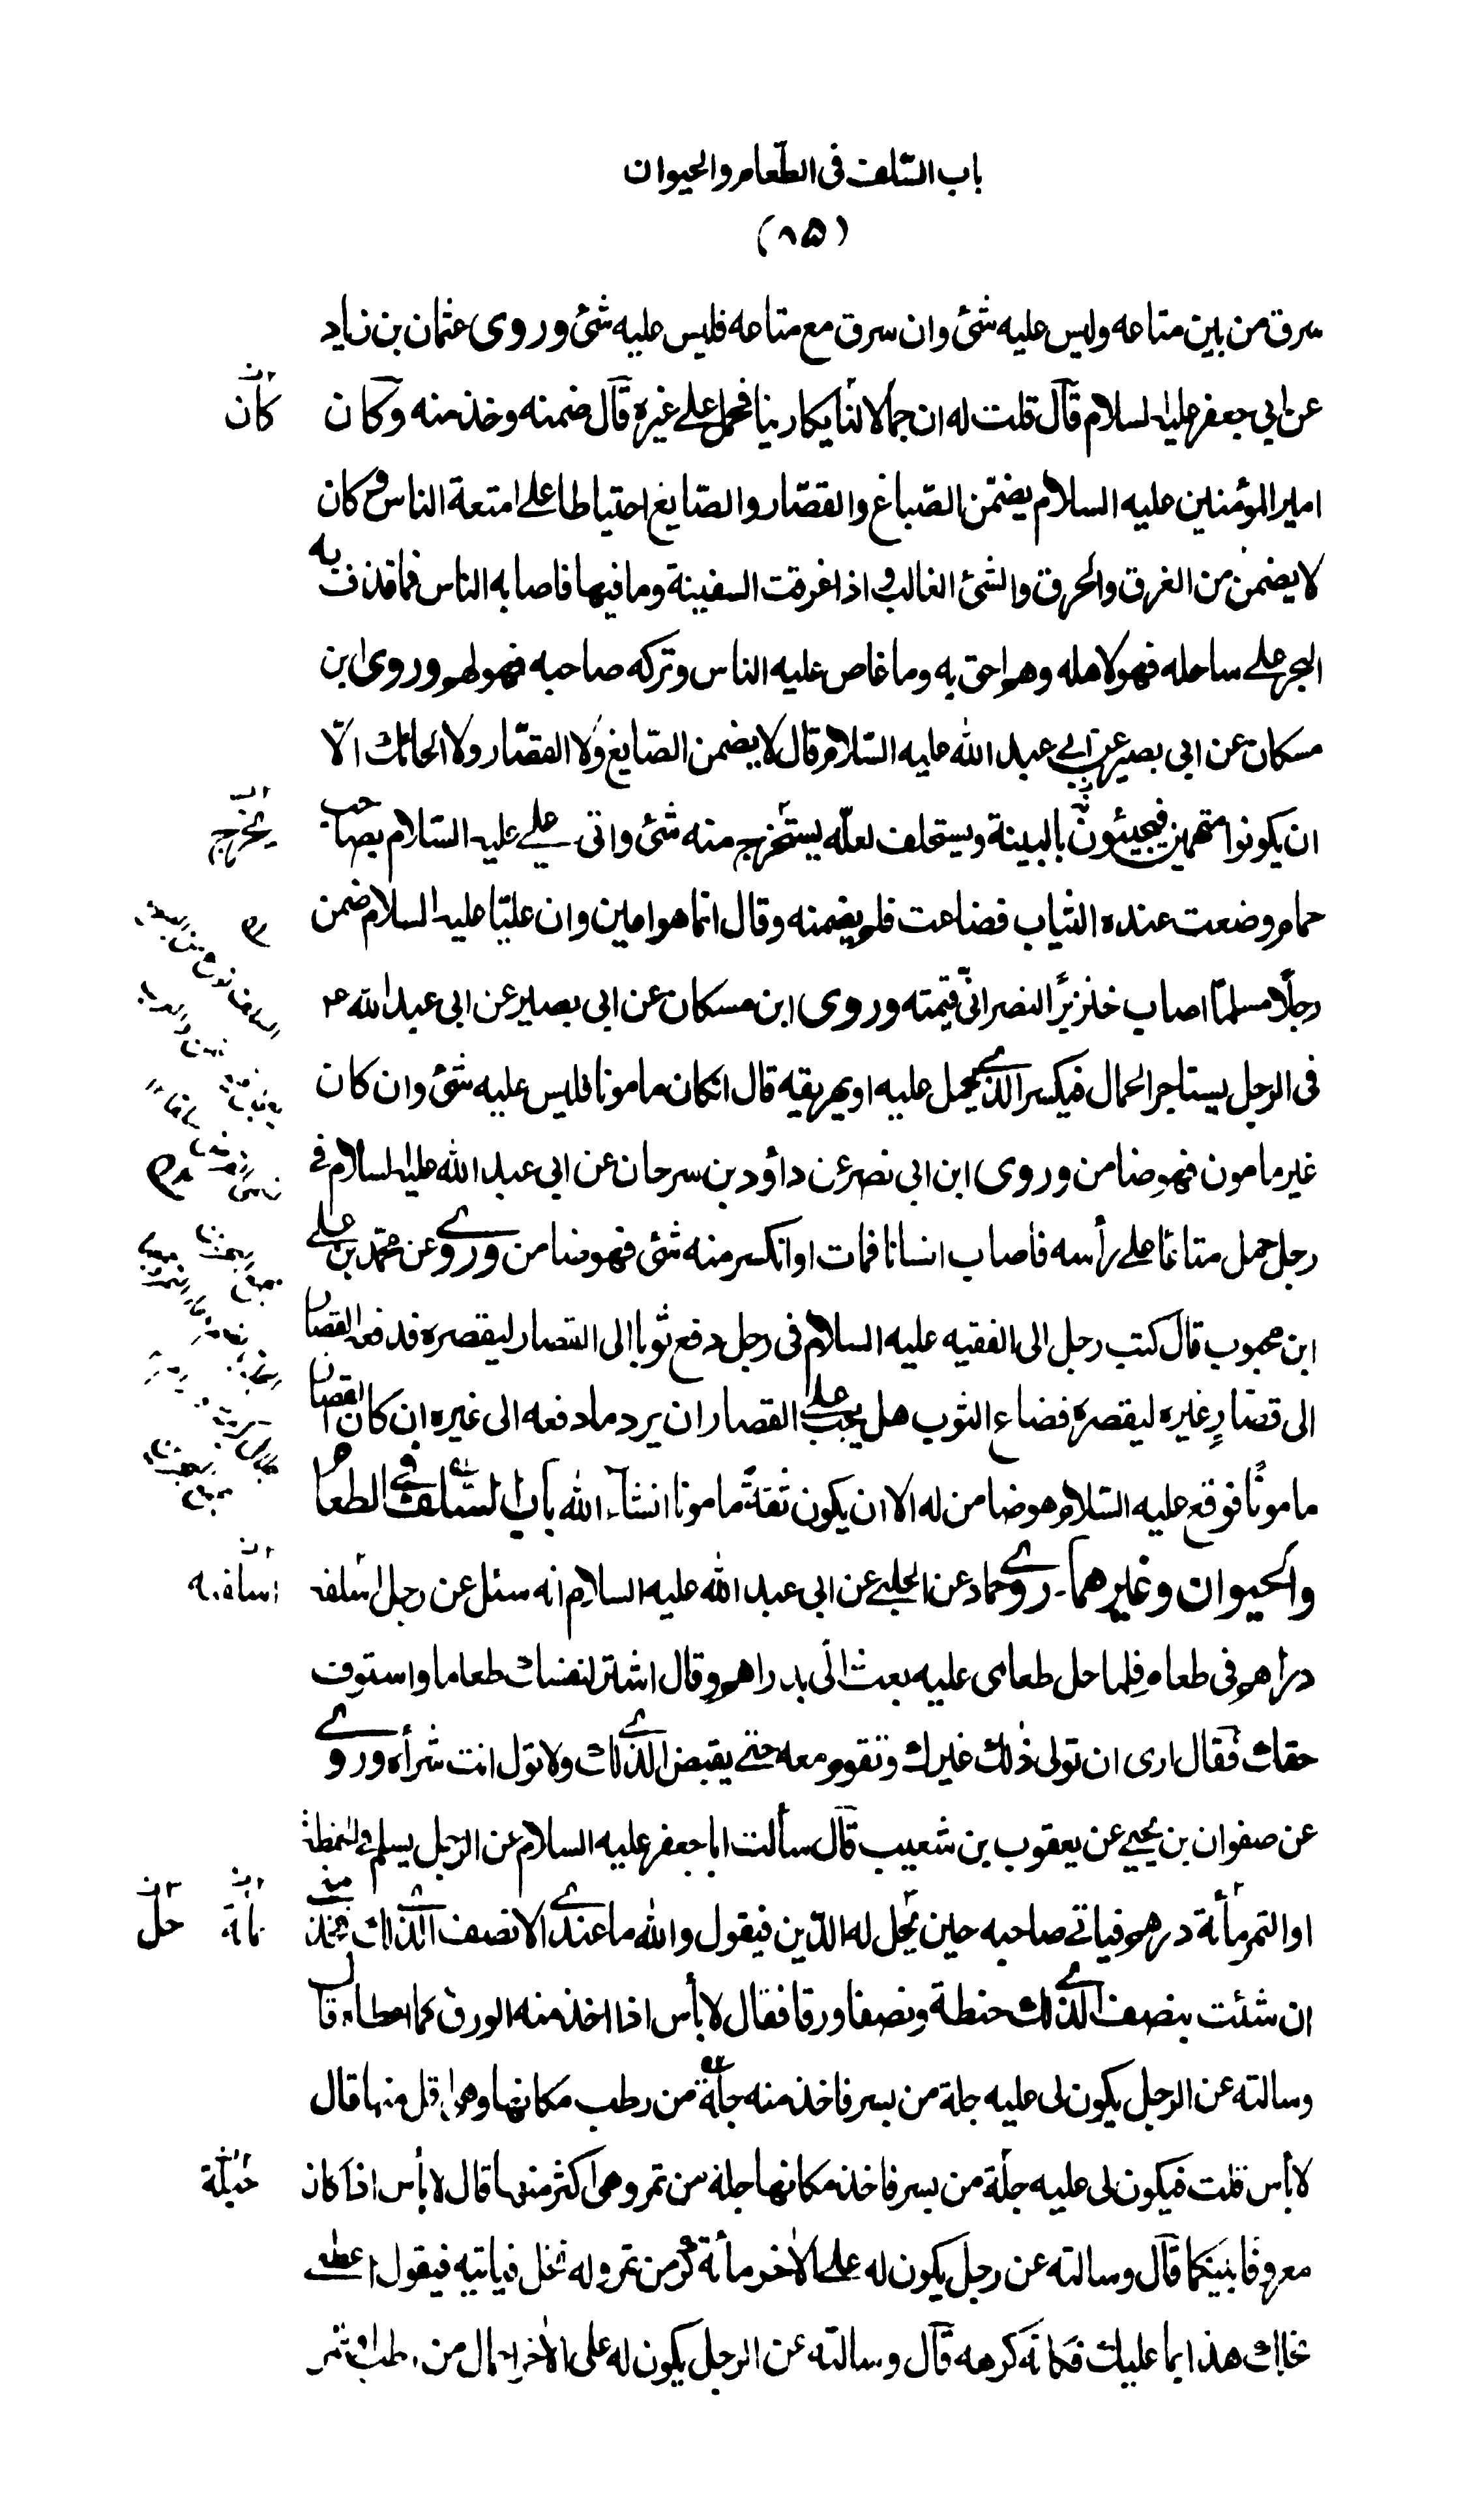 باب السّلف فی الطّعام والحیوان
(٨۵)
سرق من بین متاعه ولیس علیه شئ وان سرق مع متاعه فلیس علیه شئ وروی عثمان بن زیاد
عن ابی جعفر علیه السلام قال قلت له ان جمّالا لنا یکارینا فحمل علی غیره قال ضمنه وخذ منه وکان
کان
امیر المؤمنین علیه السلام یضمّن الصّباغ والقصّار والصّایغ احتیاطا علی امتعة الناس وکان
لا یضمن من الغرق والحرق والشئ الغالب واذا غرقت السفینة وما فیها فاصابه الناس فما قذف به
البحر علی ساحله فهو لاهله وهو احق به وما غاص علیه الناس وترکه صاحبه فهو لهم وروی ابن
مسکان عن ابی بصیر عن ابی عبد الله علیه السّلام قال لا یضمن الصّایغ ولا القصّار ولا الحائك الّا
ان یکونوا متهمین فیجیئون بالبینة ویستحلف لعلّه یستخرج منه شئ واتی علی علیه السّلام بصاحب
یخرج
حمام وضعت عنده الثیاب فضاعت فلم یضمنه وقال انما هو امین وان علیّا علیه السلام ضمن
رجلًا مسلمًا اصاب خنزیرًا لنصرانیّ قیمته وروی ابن مسکان عن ابی بصیر عن ابی عبد الله ع
فی الرجل یستاجر الحمال فیکسر الذی یحمل علیه او یهریقه قال انکان مامونا فلیس علیه شئ وان کان
غیر مامون فهو ضامن وروی ابن ابی نصر عن داؤد بن سرحان عن ابی عبد الله علیه السلام فی
رجل حمل متاعًا علی رأسه فاصاب انسانا فمات او انکسر منه شئ فهو ضامن وروی عن محمّد بن علی
ابن محبوب قال کتب رجل الی الفقیه علیه السلام فی رجل دفع ثوبا الی القصار لیقصره فدفعه القصار
الی قصّارٍ غیره لیقصره فضاع الثوب هل یجب علی القصار ان یرد ما دفعه الی غیره ان کان القصار
مامونًا فوقع علیه السّلام هو ضامن له الا ان یکون ثقةً مامونا انشاء الله باب السّلف فی الطعام
والحیوان وغیرهما۔ روی حماد عن الحلبی عن ابی عبد الله علیه السلام انه سئل عن رجل اسلفه
اسلفته
دراهم فی طعام فلما حل طعامی علیه بعث الیّ بدراهم وقال اشتر لنفسك طعاما واستوف
حقك فقال اری ان تولی ذلك غیرك وتقوم معه حتی یقبض الذی لك ولا تول انت شرأه وروی
عن صفوان بن یحیی عن یعقوب بن شعیب قال سألت ابا جعفر علیه السلام عن الرّجل یسلم فی الحنطة
او التمر بمأئة درهم فیاتی صاحبه حین یحل له الدّین فیقول والله ما عندی الا نصف الذی لك فخذ منی
حل
ان شئت بنصف الذی لك حنطة ونصفا ورقا فقال لا بأس اذا اخذ منه الورق کما اعطاه قال
وسالته عن الرجل یکون لی علیه جلة من بسر فاخذ منه جلّة من رطب مکانها وهو اقل منها قال
لا بأس قلت فیکون لی علیه جلّة من بسر فاخذ مکانها جلة من تمر وهی اکثر منها قال لا بأس اذا کان
معروفًا بینکما قال وسالته عن رجل یکون له علی الاخر مائة کر من تمر وله نخل فیاتیه فیقول اعطنی
نخلك هذا بما علیك فکانّه کرهه قال وسالته عن الرجل یکون له علی الاخر احمال من رطب او تمر